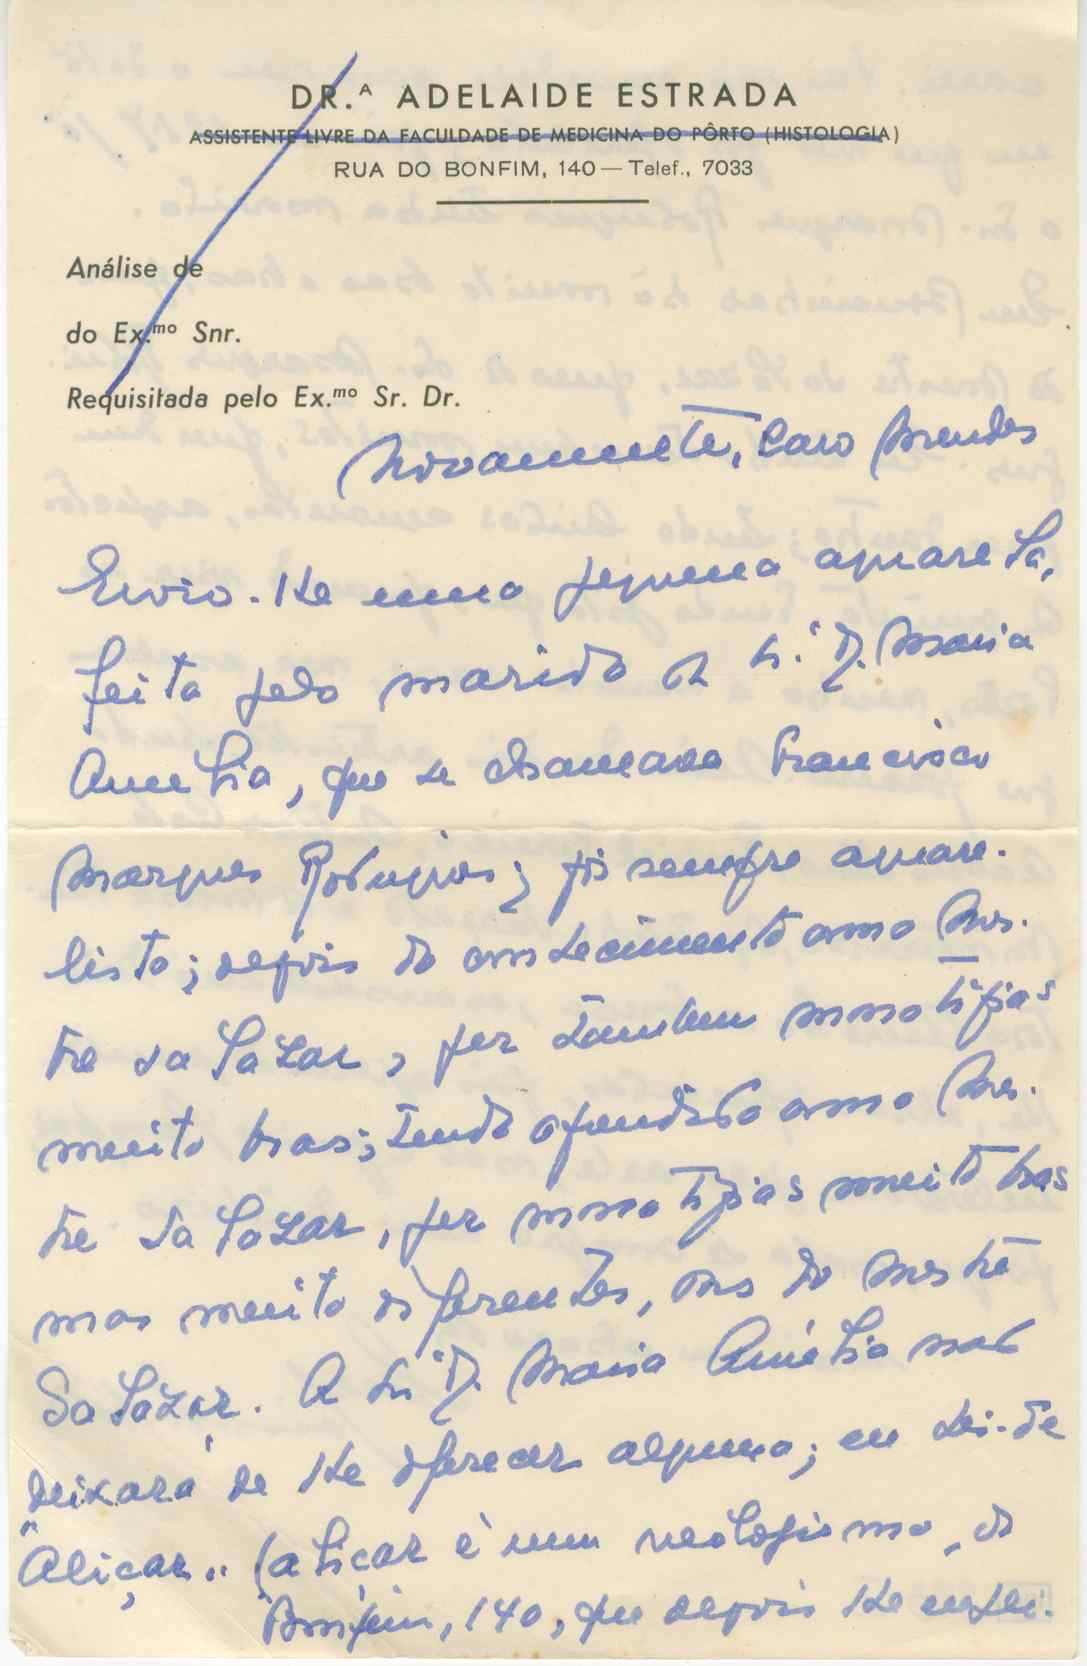 DR.ª ADELAIDE ESTRADA
ASSISTENTE LIVRE DA FACULDADE DE MEDICINA DO PÔRTO (HISTOLOGIA)
RUA DO BONFIM, 140 — Telef., 7033
Análise de
do Ex.mo Snr.
Requisitada pelo Ex.mo Sr. Dr.
Novamente, Caro Mendes
Envio-lhe uma pequena aguarela,
feita pelo marido da Sr.ª D. Maria
Amélia, que se chamava Francisco
Marques Rodrigues; foi sempre aguare-
lista; depois do conhecimento com o Mes-
tre Salazar, fez também monotipias
muito boas; tendo aprendido com o Mes-
tre Salazar, fez monotipias muito boas
mas muito diferentes, das do Mestre
Salazar. A Sr.ª D. Maria Amélia não
deixará de lhe oferecer alguma; eu hei-de
"aliçar" (aliçar é um neologismo, do
Bonfim, 140, que depois lhe expli-